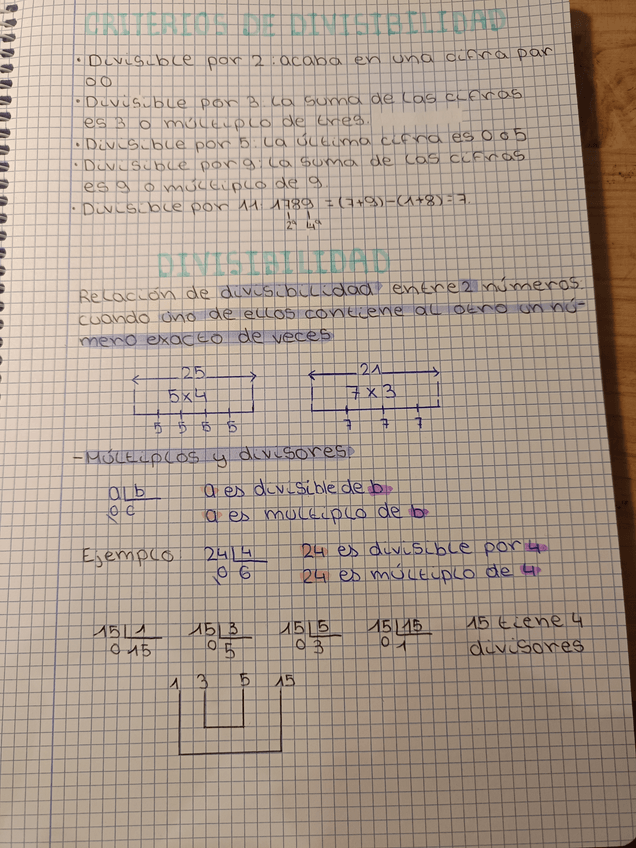 CRITERIOS DE DIVISIBILIDAD
· Divisible por 2: acaba en una cifra par
o 0
· Divisible por 3: La suma de las cifras
es 3 o múltiplo de tres.
· Divisible por 5: La última cifra es 0 o 5
· Divisible por 9: La suma de las cifras
es 9 o múltiplo de 9
· Divisible por 11: 1789 = (7+9)-(1+8)=7.
2ª 4ª
DIVISIBILIDAD
Relación de divisibilidad entre 2 números
cuando uno de ellos contiene al otro un nú-
mero exacto de veces
25 21
5x4 7x3
5 5 5 5 7 7 7
-Múltiplos y divisores
a b a es divisible de b
0 c a es multiplo de b
Ejemplo 24 4 24 es divisible por 4
0 6 24 es múltiplo de 4
15 1 15 3 15 5 15 15 15 tiene 4
0 15 0 5 0 3 0 1 divisores
1 3 5 15